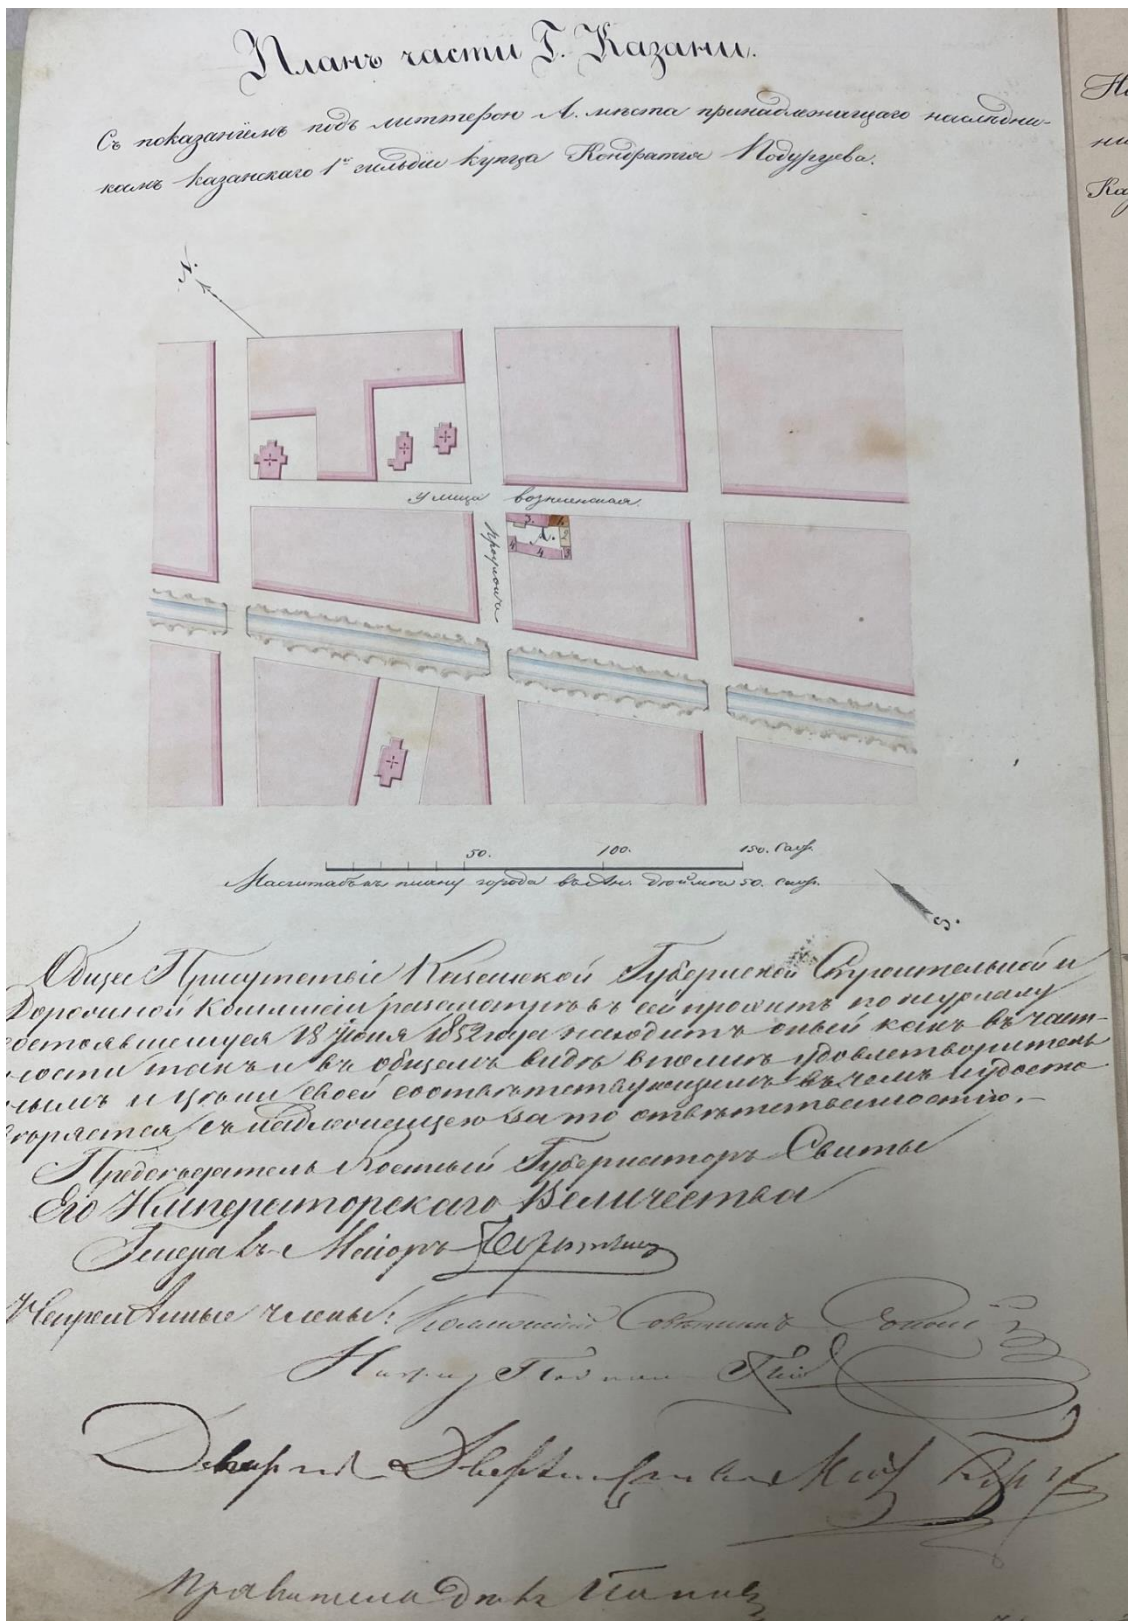 Планъ части Г. Казани.
Съ показанiемъ подъ литтерою А. мѣста принадлежащаго наслѣдни-
камъ казанскаго 1й гильдiи купца Кондратiя Подуруева.
N.
улица вознесенская
3
1
А.
2
4
4
3
проулокъ
50. 100. 150. саж.
Масштабъ къ плану города въ Ан. дюймѣ 50. саж.
S.
Общее Присутствiе Казанской Губернской Строительной и
Дорожной Коммисiи разсмотрѣвъ сей проэктъ по журналу
состоявшемуся 18 Iюня 1852 года находитъ оный какъ въ част-
ности такъ и въ общемъ видѣ вполнѣ удовлетворитель
нымъ и цѣли своей соотвѣтствующимъ въ чемъ и удосто
вѣряется съ надлежащею за то отвѣтственностiю.
Предсѣдатель Военный Губернаторъ Свиты
Его Императорскаго Величества
Генералъ Маiоръ
Непремѣнные члены:
Совѣтникъ
Правитель дѣлъ